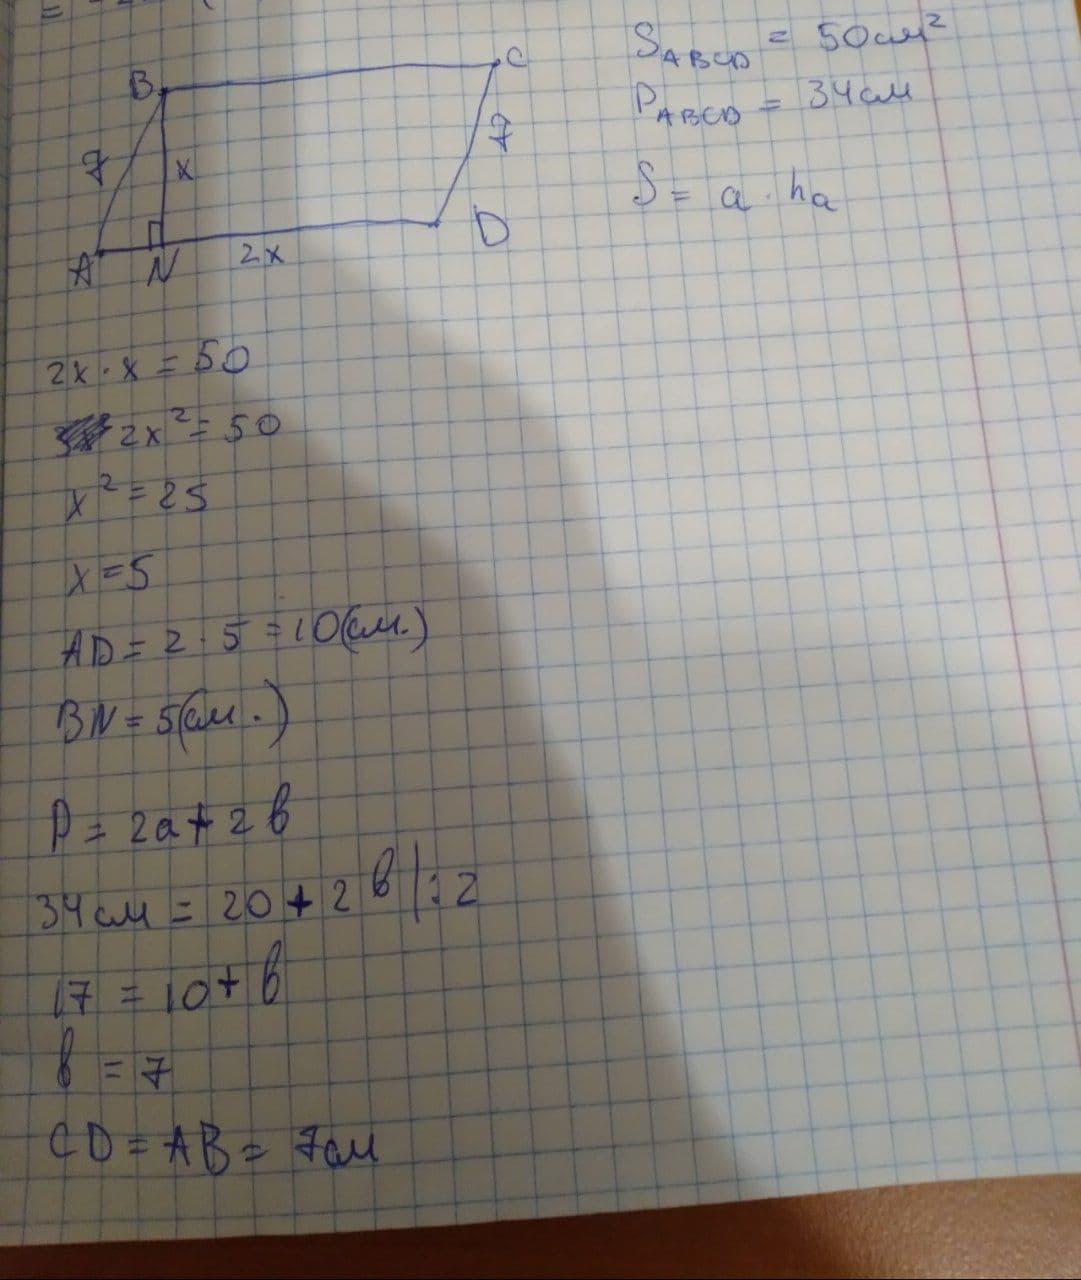 B
C
7
x
7
A
N
2x
D
S ABCD = 50см²
P ABCD = 34см
S = a · ha
2x · x = 50
2x² = 50
x² = 25
x = 5
AD = 2 · 5 = 10(см.)
BN = 5(см.)
P = 2a + 2в
34см = 20 + 2в |:2
17 = 10 + в
в = 7
CD = AB = 7см